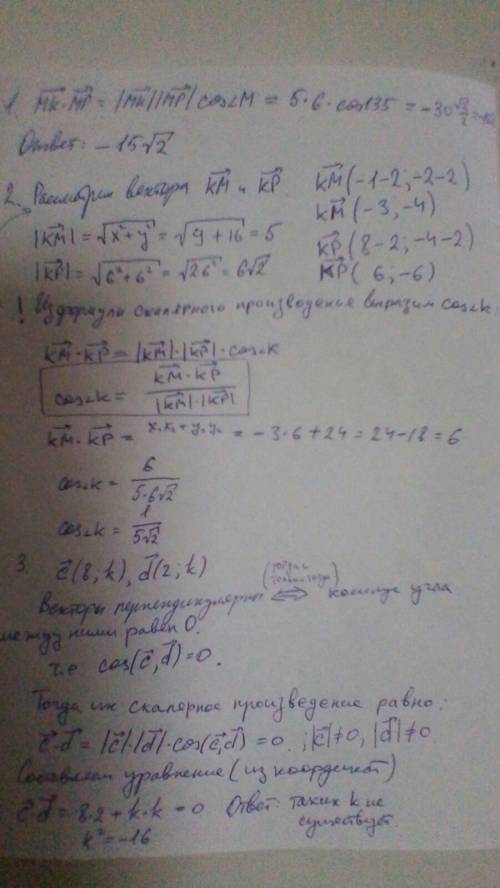 1. MK·MP = |MK||MP| cos∠M = 5·6·cos135 = -30√2/2 =
Ответ: -15√2
2. Рассмотрим вектора KM и KP. KM(-1-2; -2-2)
KM(-3, -4)
|KM| = √x²+y² = √9+16 = 5 KP(8-2; -4-2)
|KP| = √6²+6² = √26² = 6√2 KP(6, -6)
! Из формулы скалярного произведения выразим cos∠K:
KM·KP = |KM|·|KP|·cos∠K
cos∠K = KM·KP / |KM|·|KP|
KM·KP = x₁x₂+y₁y₂ = -3·6+24 = 24-18 = 6
cos∠K = 6 / 5·6√2
cos∠K = 1 / 5√2
3. c(8; k), d(2; k)
Векторы перпендикулярны (тогда и только тогда) ⟺ косинус угла
между ними равен 0.
т.е. cos(c, d) = 0.
Тогда их скалярное произведение равно:
c·d = |c|·|d|·cos(c, d) = 0. ; |c|≠0, |d|≠0.
Составляем уравнение (из координат)
c·d = 8·2 + k·k = 0 Ответ: таких k не
k² = -16 существует.